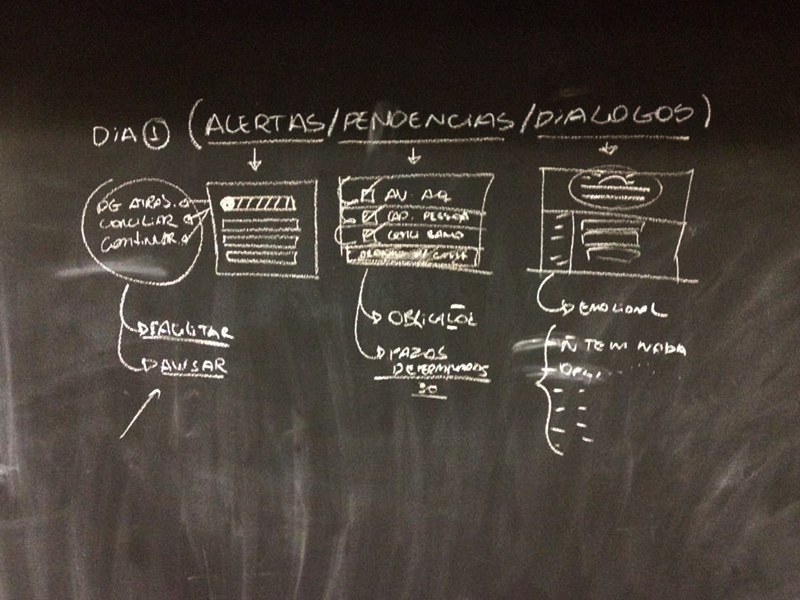 DIA 1 (ALERTAS/PENDENCIAS/DIALOGOS)
CONCILIAR
CONTINUAR
FACILITAR
AVISAR
AV. AQ
CAD. PESSOA
CONCI BANCO
PRAZOS
DETERMINADOS
30
EMOCIONAL
Ñ TEM NADA
OPS!